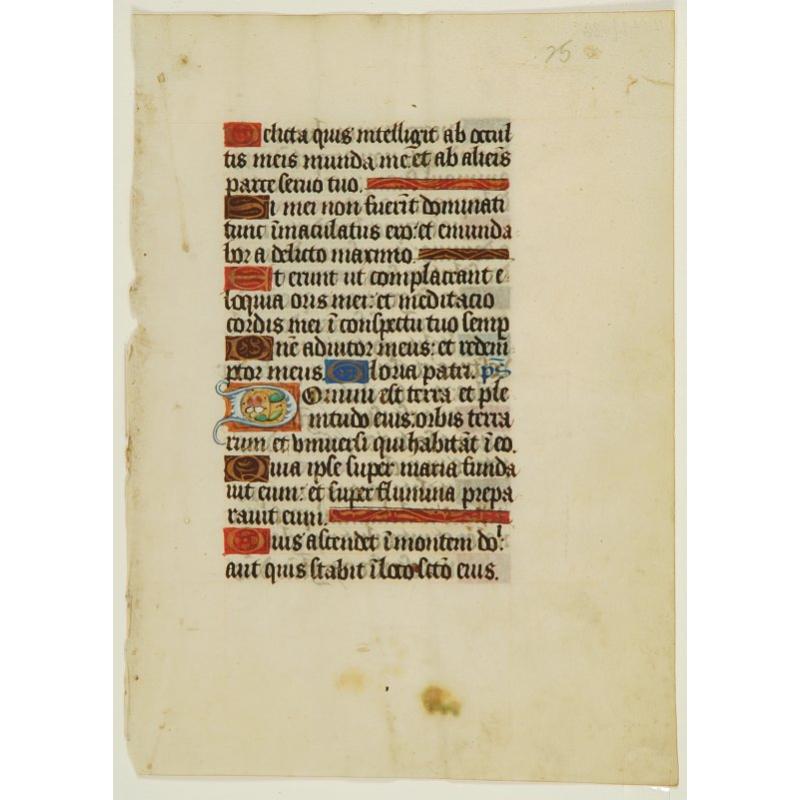 25
Delicta quis intelligit ab occul
tis meis munda me: et ab alienis
parce seruo tuo.
Si mei non fuerīt dominati
tunc īmaculatus ero: et emunda
bor a delicto maximo.
Et erunt ut complaceant e
loquia oris mei: et meditacio
cordis mei ī conspectu tuo semp
Dñe adiutor meus: et redem
ptor meus. Gloria patri. pš
Domini est terra et ple
nitudo eius: orbis terra
rum et vniuersi qui habitāt ī eo.
Quia ipse super maria funda
uit eum: et super flumina prepa
rauit eum.
Quis ascendet ī montem do:
aut quis stabit ī loco scto eius.